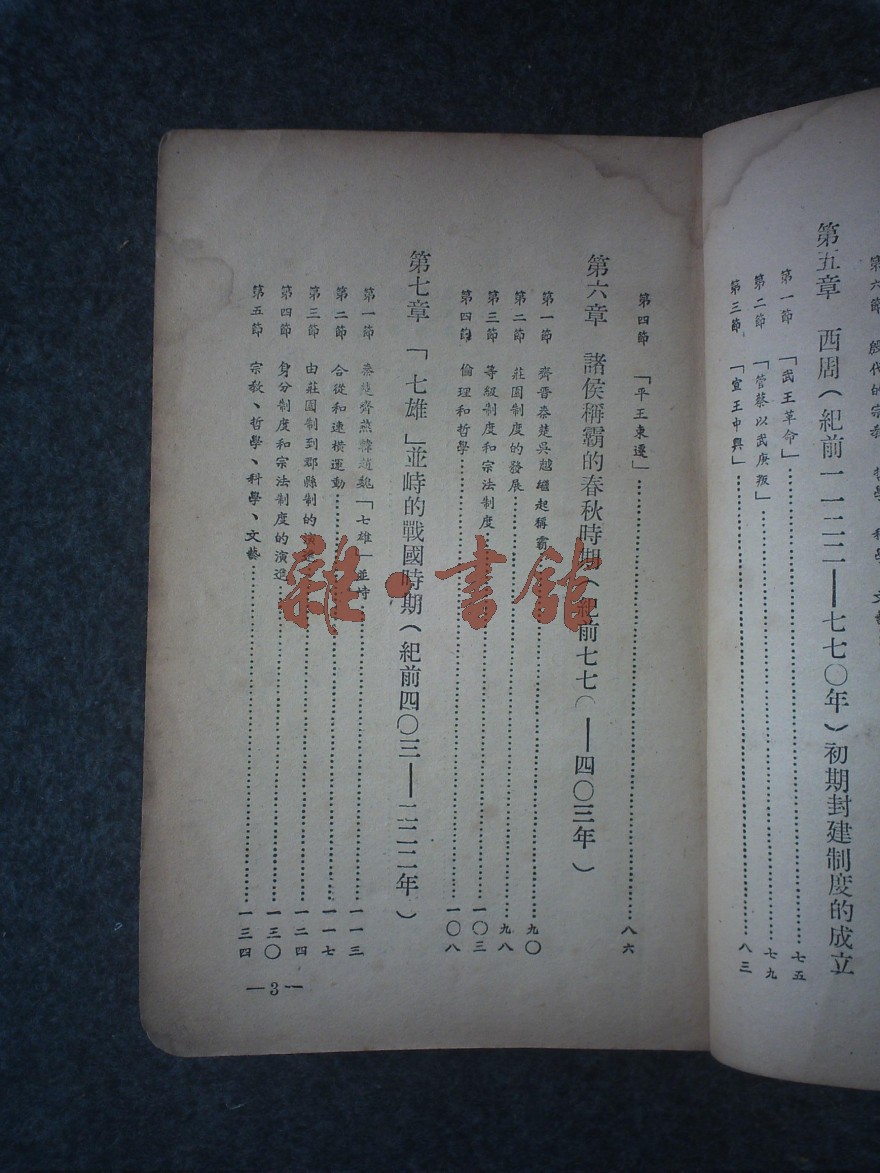 第六節 殷代的宗教、哲學、科學、文藝
第五章 西周(紀前一一二二——七七〇年)初期封建制度的成立
第一節 「武王革命」……七五
第二節 「管蔡以武庚叛」……七九
第三節 「宣王中興」……八三
第四節 「平王東遷」……八六
第六章 諸侯稱霸的春秋時期(紀前七七〇——四〇三年)
第一節 齊晉秦楚吳越繼起稱霸……九〇
第二節 莊園制度的發展……九八
第三節 等級制度和宗法制度……一〇三
第四節 倫理和哲學……一〇八
第七章 「七雄」並峙的戰國時期(紀前四〇三——二二二年)
第一節 秦楚齊燕韓趙魏「七雄」並峙……一一三
第二節 合從和連橫運動……一一七
第三節 由莊園制到郡縣制的……一二四
第四節 身分制度和宗法制度的演進……一三〇
第五節 宗教、哲學、科學、文藝……一三四
—3—
雜·書館